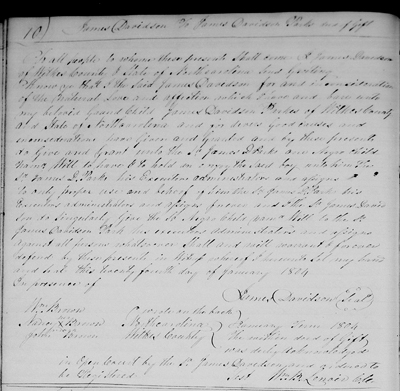 10) James Davidson To James Davidson Parks deed of Gift
To all people to whome these presents Shall come I James Davidson
of Wilkes County & State of North carolina Send Greeting
Know ye that I the Said James Davidson for and in consideration
of the paternal Love and affection which I have and bare unto
my beloved Grand Child James Davidson Parks of Wilkes County
and State of North carolina and in divers Good causes
considerations have Given and Granted and by these presents
do Give and Grant unto the Sd James D Parks one Negro Child
named Will to have & to hold the said boy unto him the
Sd James D Parks his Executors administrators and assigns
to only proper use and behoof of him the Sd James D Park his
Executors administrators and assigns forever and I the Sd James David
son do Singularly Give the Sd Negro Child named Will to the Sd
James Davidson Park his executors administrators and assigns
against all persons whatsoever Shall and will warrant & forever
defend by these presents in Witness whereof I hereunto Set my hand
and seal this twenty fourth day of January 1804
In presence of
James Davidson (Seal)
Wm Brown
Nancy Brown
Brown
No Carolina
Wilkes County
January Term 1804
The within deed of Gift
was duly acknowledged
in Open Court by the Sd James Davidson and ordered to
be Registered Test Wm B Lenoir